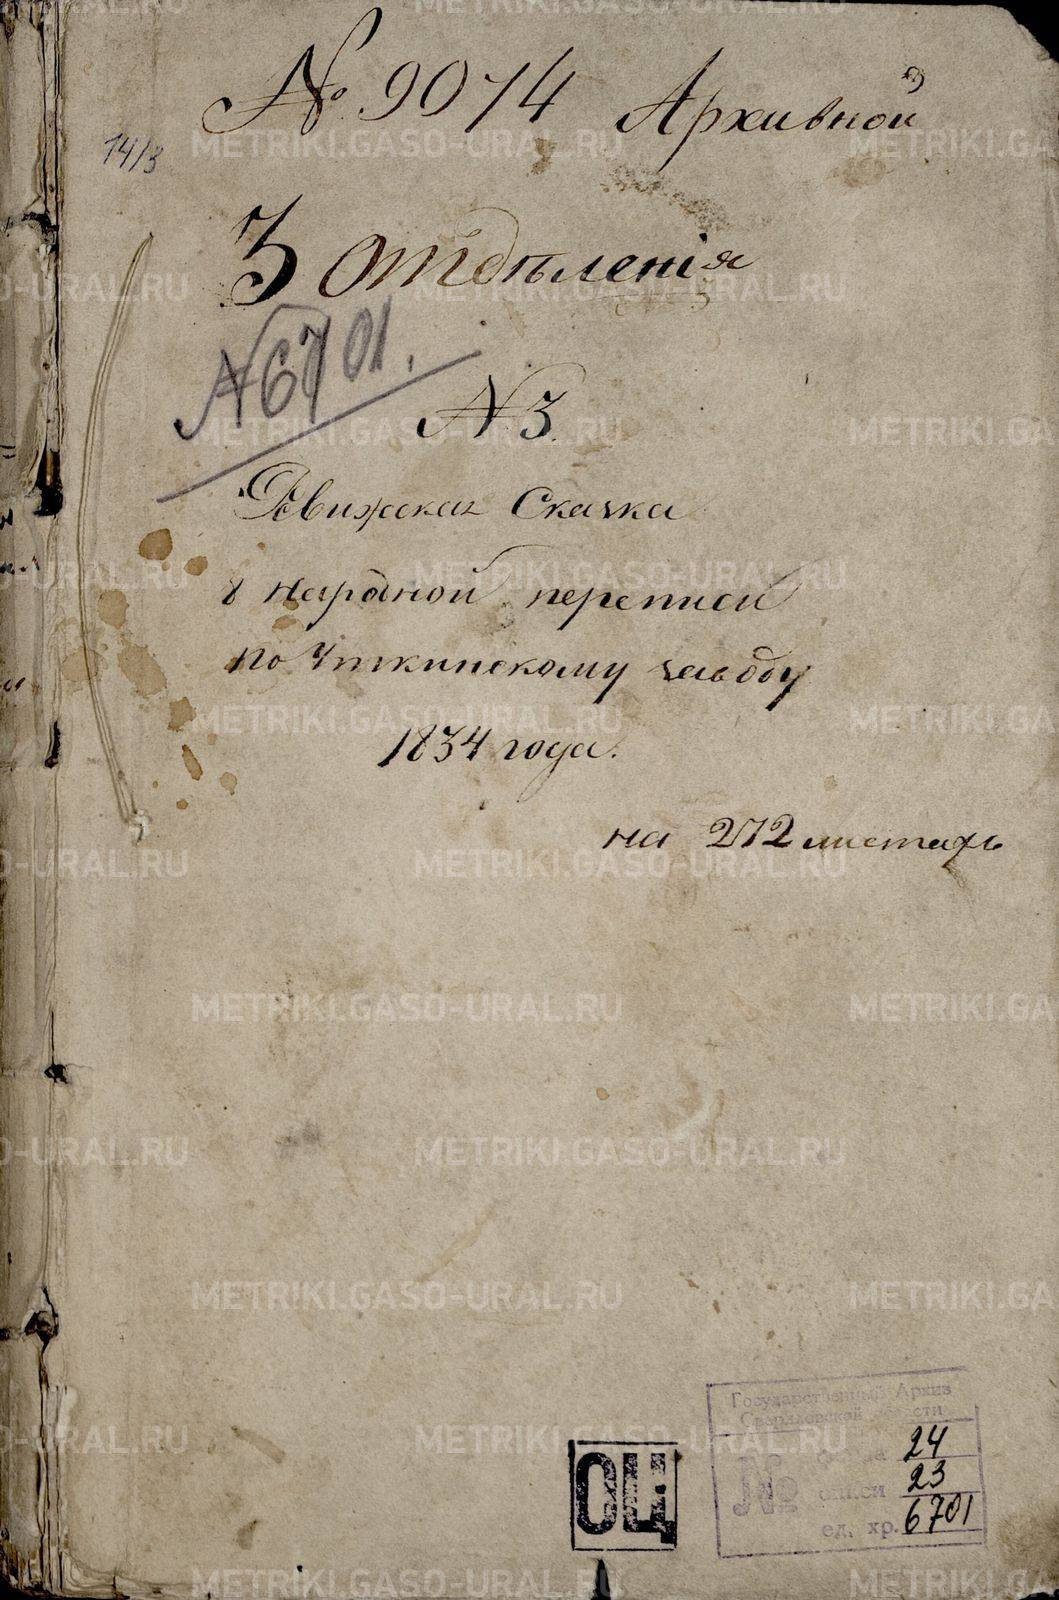 № 9074 Архивной
14/3
3 отдѣленія
№ 6701.
№ 3.
Ревижская Скаска
8 народной переписи
по Уткинскому заводу
1834 года.
на 272 листахъ
ОЦ
Государственный Архив
Свердловской области
№
фонда 24
описи 23
ед. хр. 6701
METRIKI.GASO-URAL.RU